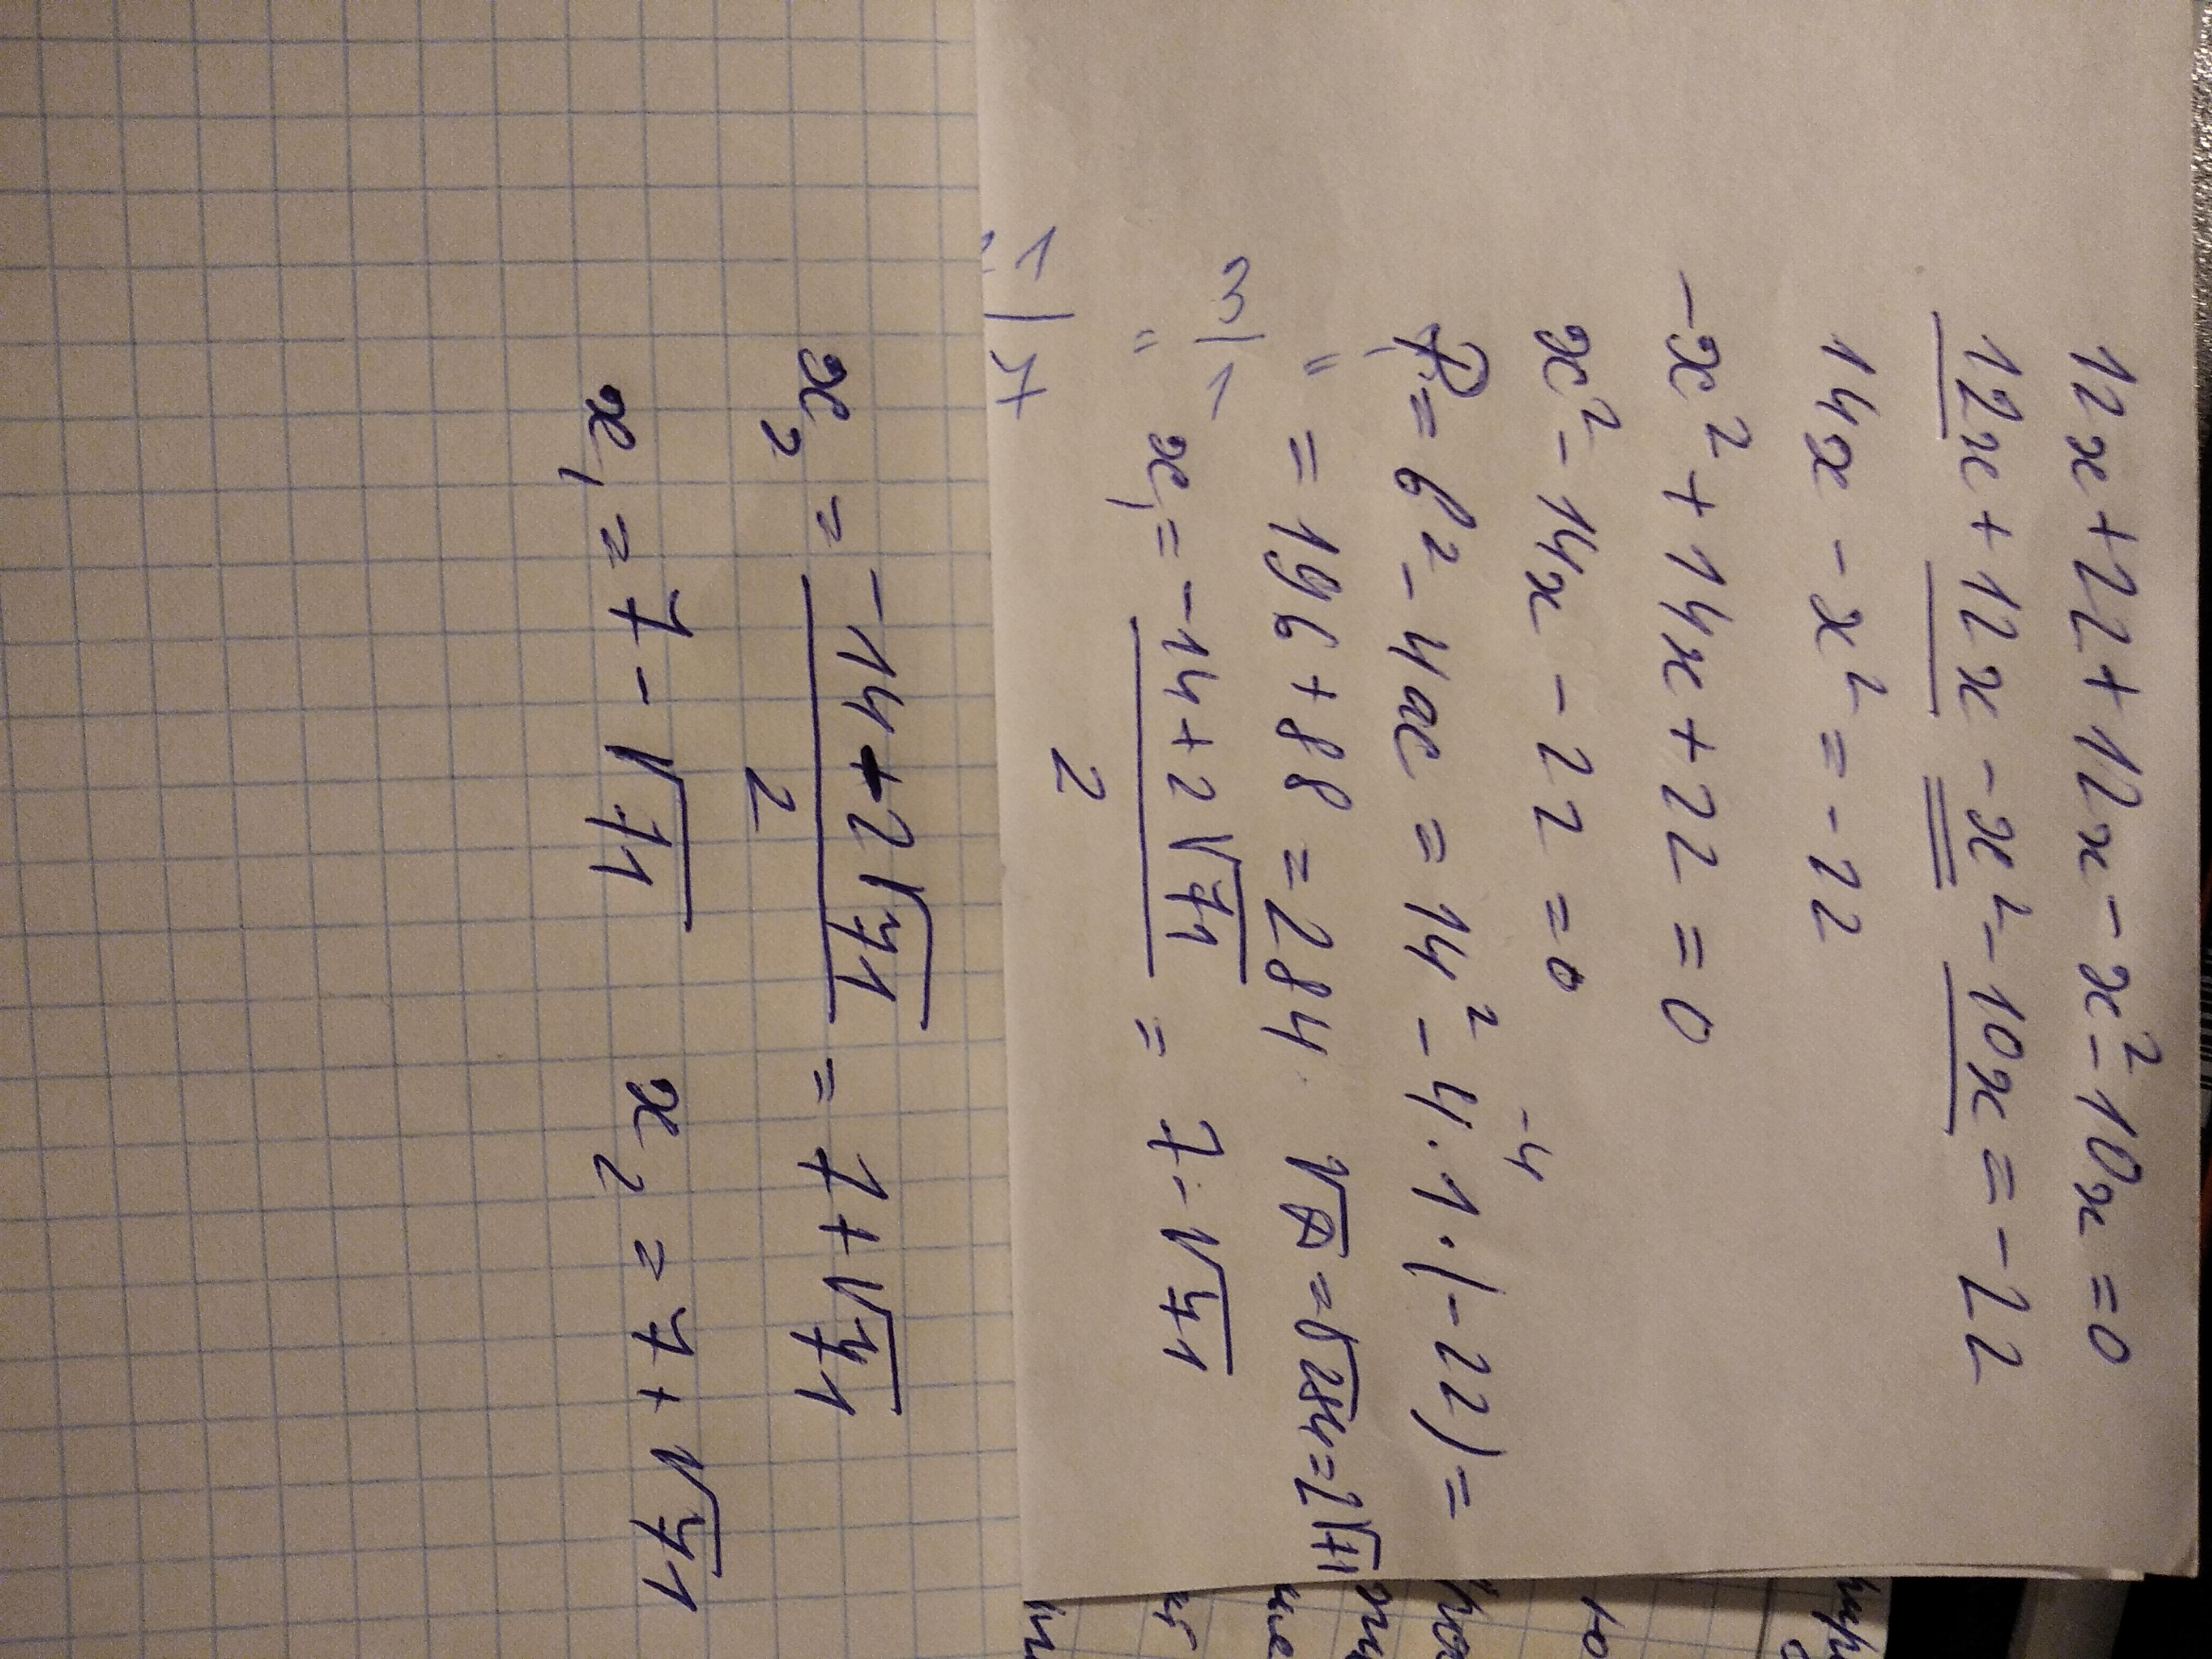 12x+22+12x-x²-10x=0
12x+12x-x²-10x=-22
14x-x²=-22
-x²+14x+22=0
x²-14x-22=0
-4
D=b²-4ac=14²-4·1·(-22)=
=196+88=284 √D=√284=2√71
x₁=-14+2√71/2=7-√71
x₂=-14+2√71/2=7+√71
x₁=7-√71 x₂=7+√71